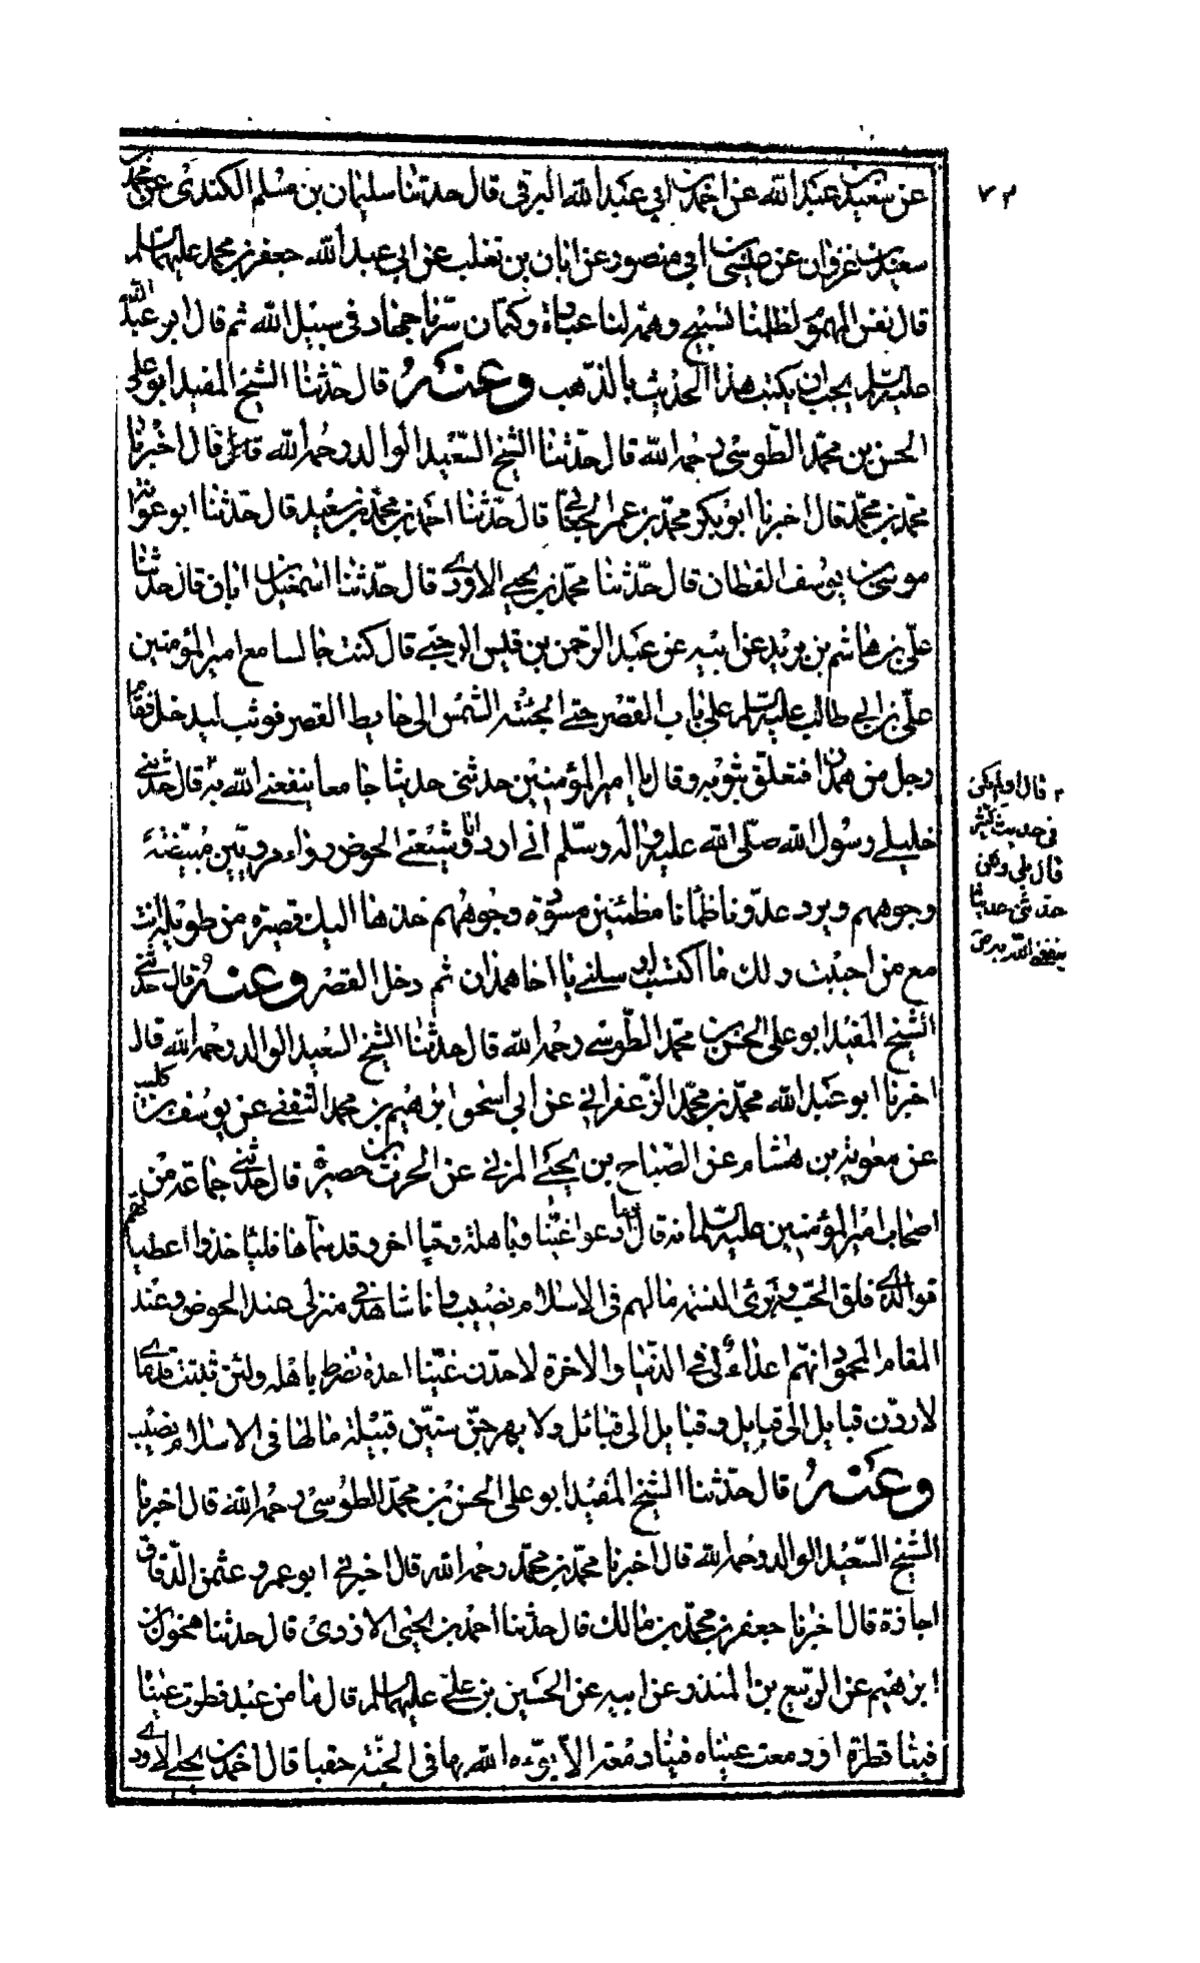 ٧٢
عن سعيد بن عبد الله عن احمد بن ابي عبد الله البرقي قال حدثنا سليمان بن مسلم الكندي عن محمد بن
سعيد بن غزوان عن عيسى بن ابي منصور عن ابان بن تغلب عن ابي عبد الله جعفر بن محمد عليهما السلم
قال نفس المهموم لظلمنا تسبيح وهمه لنا عبادة وكتمان سرنا جهاد في سبيل الله ثم قال ابو عبد الله
عليه السلم يجب ان يكتب هذا الحديث بالذهب وعنه قال حدثنا الشيخ المفيد ابو علي
الحسن بن محمد الطوسي رحمه الله قال حدثنا الشيخ السعيد الوالد رحمه الله قال اخبرنا
محمد بن محمد قال اخبرنا ابو بكر محمد بن عمر الجعابي قال حدثنا احمد بن محمد بن سعيد قال حدثنا ابو عوانة
موسى بن يوسف القطان قال حدثنا محمد بن يحيى الاودي قال حدثنا اسمعيل بن ابان قال حدثنا
علي بن هاشم بن بريد عن ابيه عن عبد الرحمن بن قيس الرحبي قال كنت جالسا مع امير المؤمنين
علي بن ابي طالب عليه السلم على باب القصر حتى الجئته الشمس الى حايط القصر فوثب ليدخل فقام
رجل من همدان فتعلق بثوبه وقال يا امير المؤمنين حدثني حديثا جامعا ينفعني الله به قال حدثني
خليلي رسول الله صلى الله عليه واله وسلم اني ارد انا وشيعتي الحوض رواء مرويين مبيضة
وجوههم ويرد عدونا ظمأنا مظمئين مسودة وجوههم خذها اليك قصيرة من طويلة انت
مع من احببت ولك ما اكتسبت ارسلني يا اخا همدان ثم دخل القصر وعنه قال حدثني
الشيخ المفيد ابو علي الحسن بن محمد الطوسي رحمه الله قال حدثنا الشيخ السعيد الوالد رحمه الله قال
اخبرنا ابو عبد الله محمد بن محمد الزعفراني عن ابي اسحق ابرهيم بن محمد الثقفي عن يوسف بن كليب
عن معوية بن هشام عن الصباح بن يحيى المزني عن الحرث بن حصيرة قال حدثني جماعة من
اصحاب امير المؤمنين عليه السلم انه قال يوما ادعوا غنيا وباهلة وحيا اخر وقد سماها فليأخذوا اعطياتهم
فوالذي فلق الحبة وبرئ النسمة ما لهم في الاسلام نصيب وانا شاهد في منزلي عند الحوض وعند
المقام المحمود انهم اعداء لي في الدنيا والاخرة لاخذن غنيا اخذة تضرط باهلة ولئن ثبتت قدماي
لاردن قبايل الى قبايل وقبايل الى قبائل ولابهرجن ستين قبيلة ما لها في الاسلام نصيب
وعنه قال حدثنا الشيخ المفيد ابو علي الحسن بن محمد الطوسي رحمه الله قال اخبرنا
الشيخ السعيد الوالد رحمه الله قال اخبرنا محمد بن محمد رحمه الله قال اخبرني ابو عمرو عثمن الدقاق
اجازة قال اخبرنا جعفر بن محمد بن مالك قال حدثنا احمد بن يحيى الازدي قال حدثنا مخول بن
ابرهيم عن الربيع بن المنذر عن ابيه عن الحسين بن علي عليهما السلم قال ما من عبد قطرت عيناه
فينا قطرة او دمعت عيناه فينا دمعة الا بوءه الله بها في الجنة حقبا قال احمد بن يحيى الاودي
قال اولم يكن
في حديث كثير
قال بلى ولكن
حدثني حديثا
ينفعني الله به